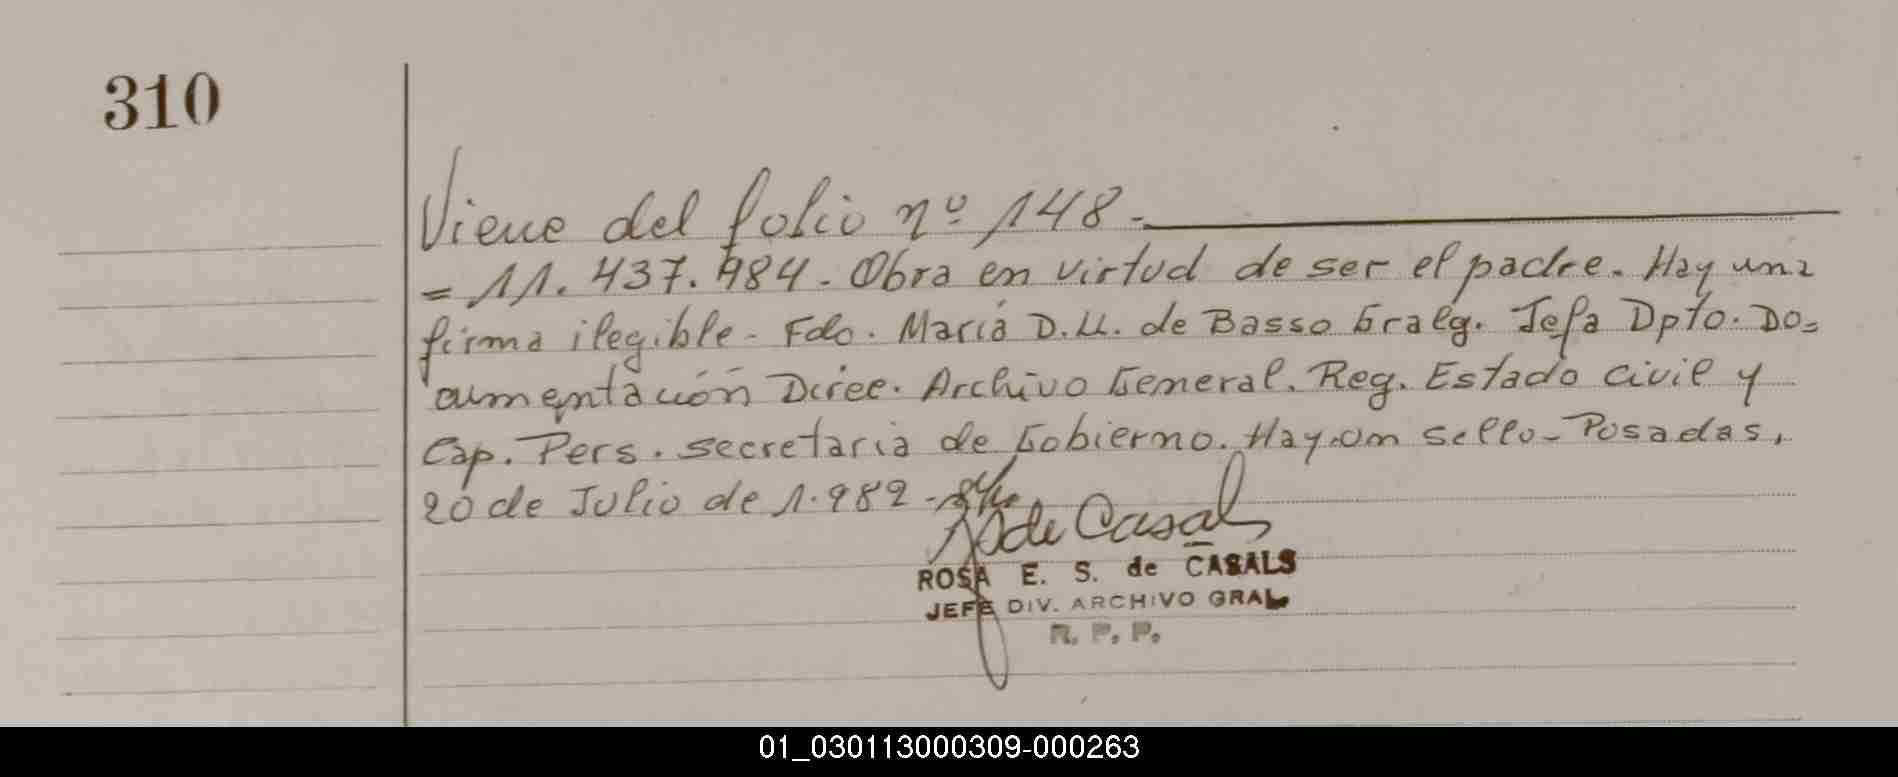 310
Viene del folio nº 148.-
= 11.437.984- Obra en virtud de ser el padre. Hay una
firma ilegible- Fdo. María D.U. de Basso Gralg. Jefa Dpto. Do=
cumentación Direc. Archivo General. Reg. Estado civil y
Cap. Pers. secretaria de Gobierno. Hay un sello- Posadas,
20 de Julio de 1.982-
de Casals
ROSA E. S. de CASALS
JEFE DIV. ARCHIVO GRAL
R. P. P.
01_030113000309-000263